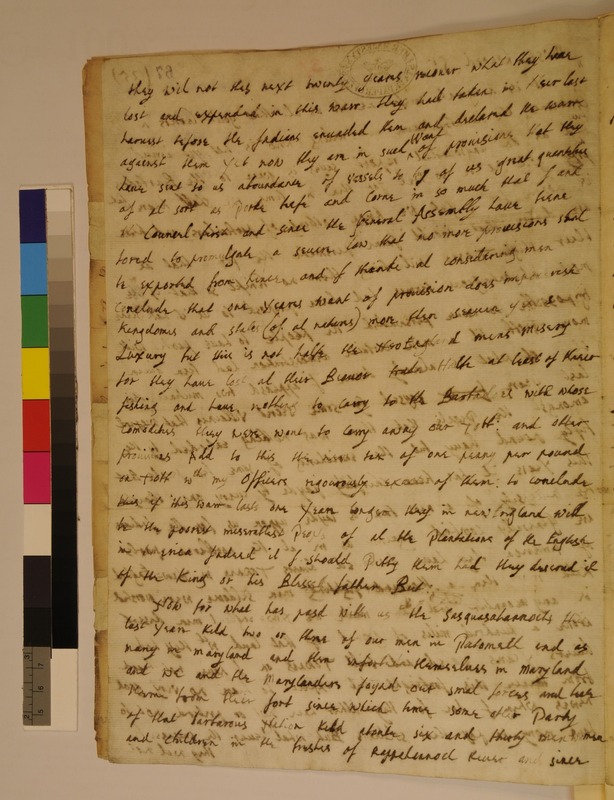 they will not this next twenty yeares recover what they have
lost and expended in this warr they had taken in their last
harvest before the Indians invaded them and declared the warr
against them yet now they are in such Want of provisions that they
have sent to us abundance of vessels to buy of us great quantities
of al sort as porke befe and Corne in so much that I and
Councel first and since the General Assembly have bene
forced to promulgate a severe law that no more provisions shal
be exported from hence and I thinke al considering men
Conclude that one yeares want of provision does impoverish
Kingdomes and states (of al nations) more then seaven yeares
Luxury but this is not halfe the New England mens misery
for they have lost al their Beavor trade Halfe at least of their
fishing and have nothing to carry to the Barbados with whose
comodities they were wont to carry away our Tobb: and other
provisions Add to this the new tax of one peny per pound
on Tobb wch my Officers rigourously exact of them to conclude
this if this warr lasts one yeare longer they in new Ingland wilbe
the poorest miserablest People of al the Plantations of the English
in America Indeed il I should Pitty them had they deserved it
of the King or his Blessed father But
Now for what has past with us the Sasquasahannocks the
last yeare kild two or three of our men in Patomack and as
many in maryland and then inforted themselves in maryland
and we and the Marylanders joyned our smal forces and beat
them from their fort since which time some other Party
of that barbarous Nation kild aboute six and thirty men women
and children in the freshes of Rappahannock River and since